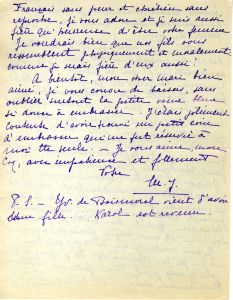 Français sans peur et chrétien sans
reproche, je vous adore et je suis aussi
fière qu'heureuse d'être votre femme
Je voudrais bien que nos fils vous
ressemblent physiquement et moralement
comme je serais fière d'eux aussi !
A bientôt, mon cher mari bien
aimé, je vous couvre de baisers, sans
oublier surtout la petite veine
se donne à embrasser – J'étais joliment
contente d'avoir trouvé un petit coin
d'embrasser qui me fut réservé à
moi toute seule. – Je vous aime, mon
avec impatience et follement
Votre
M. J.
P. S. – de Boismorel vient d'avoir
fille. Karol est revenu.